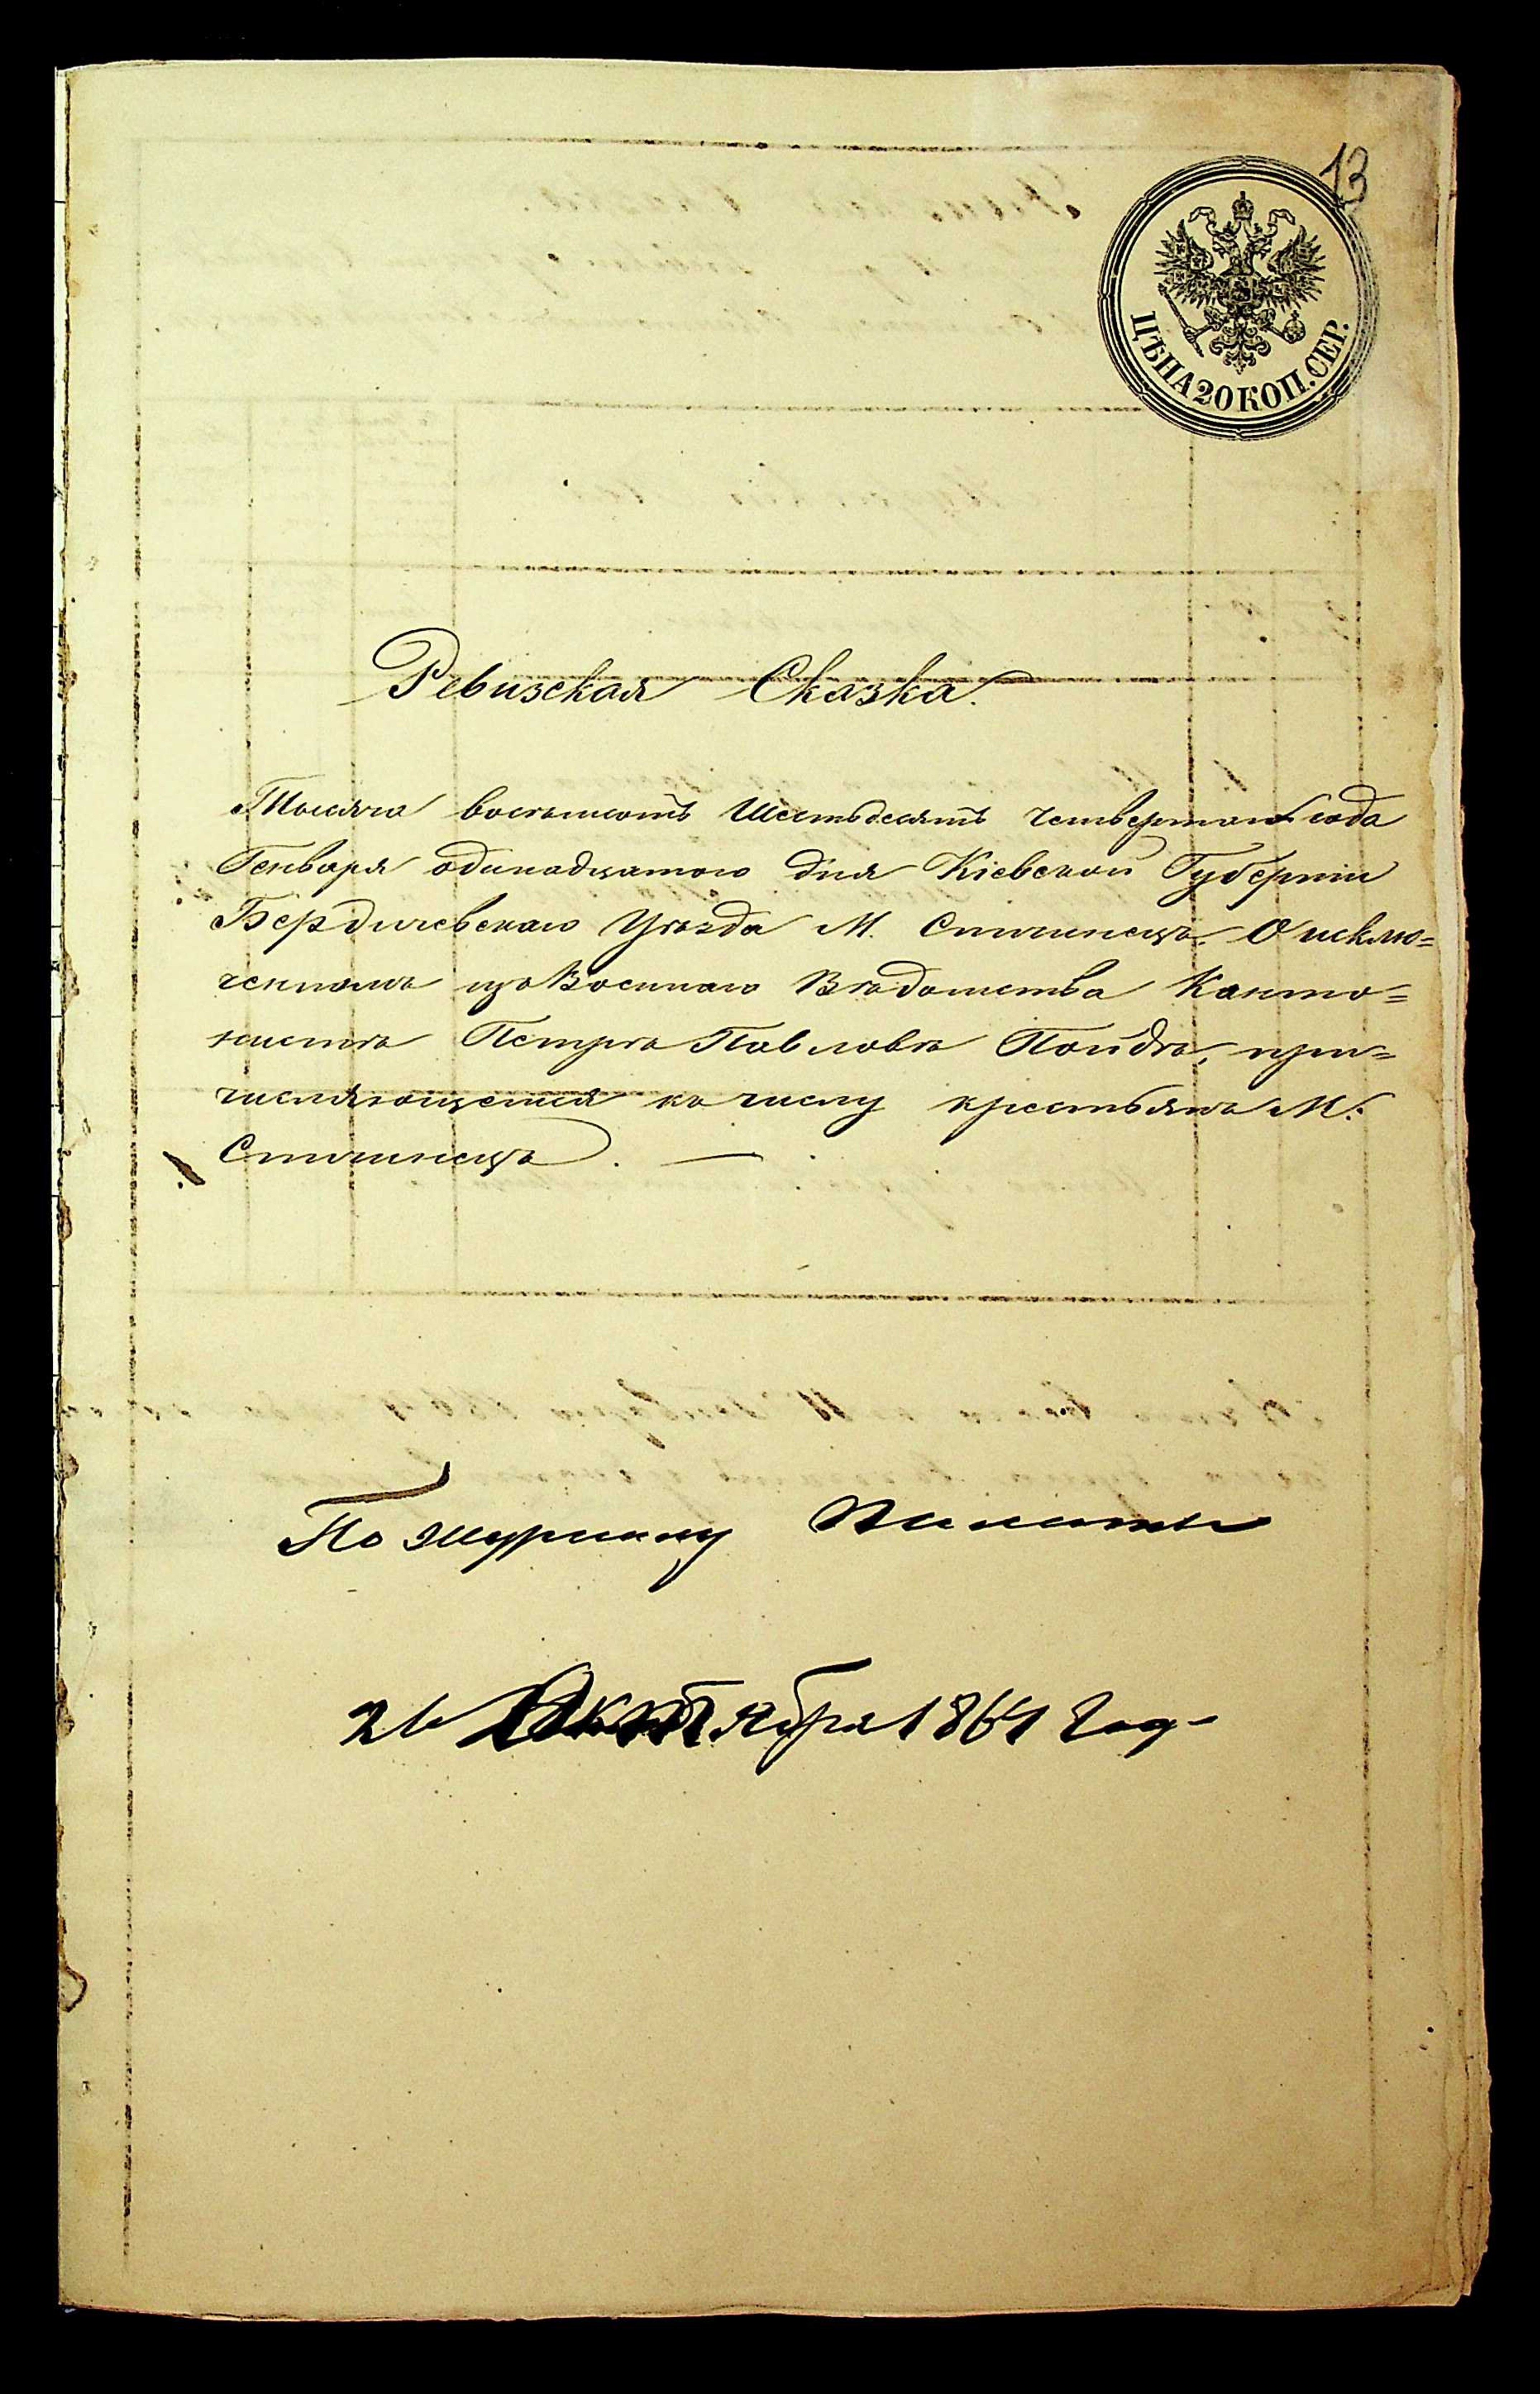 13
ЦѢНА 20 КОП. СЕР.
Ревизская Сказка.
Тысяча восемьсотъ Шестьдесятъ четвертаго года
Генваря одинадцатого дня Кіевской Губерніи
Бердичевскаго Уѣзда М. Спичинецъ. О исклю=
ченномъ изъ Военнаго Вѣдомства Канто=
нистѣ Петрѣ Павловѣ Пойдѣ, при=
числяющемся къ числу крестьянъ М.
Спичинецъ. —
По Журналу Палаты
Октября 1864 год